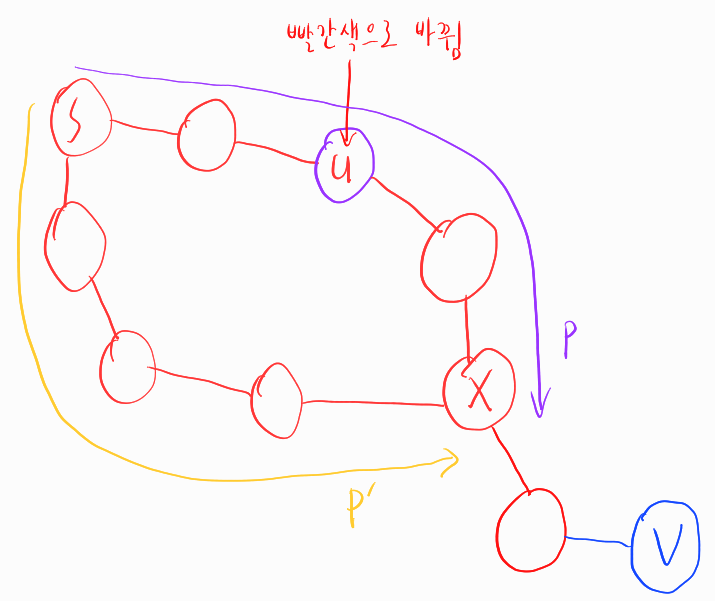 빨간색으로 바뀜
S
u
P
X
P'
V